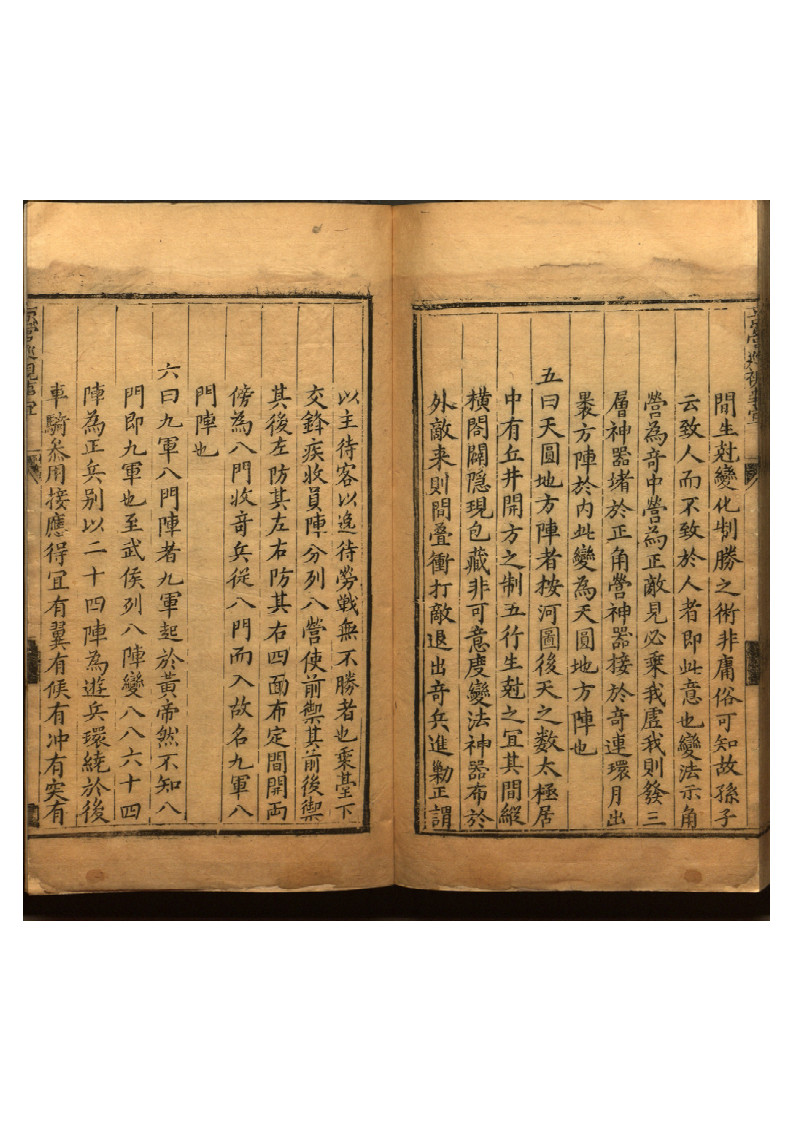 間生尅變化制勝之術非庸俗可知故孫子
云致人而不致於人者即此意也變法示角
營為奇中營為正敵見必乘我虛我則發三
層神器堵於正角營神器接於奇連環月出
褁方陣於内此變為天圓地方陣也
五曰天圓地方陣者按河圖後天之數太極居
中有丘井開方之制五行生尅之宜其間縱
橫闔闢隱現包藏非可意度變法神器布於
外敵来則間叠衝打敵退出奇兵進勦正謂
以主待客以逸待勞戰無不勝者也乘臺下
交鋒疾收員陣分列八營使前禦其前後禦
其後左防其左右防其右四面布定間開両
傍為八門收竒兵從八門而入故名九軍八
門陣也
六曰九軍八門陣者九軍起於黃帝然不知八
門即九軍也至武侯列八陣變八八六十四
陣為正兵别以二十四陣為遊兵環繞於後
車騎叅用接應得宜有翼有候有冲有突有